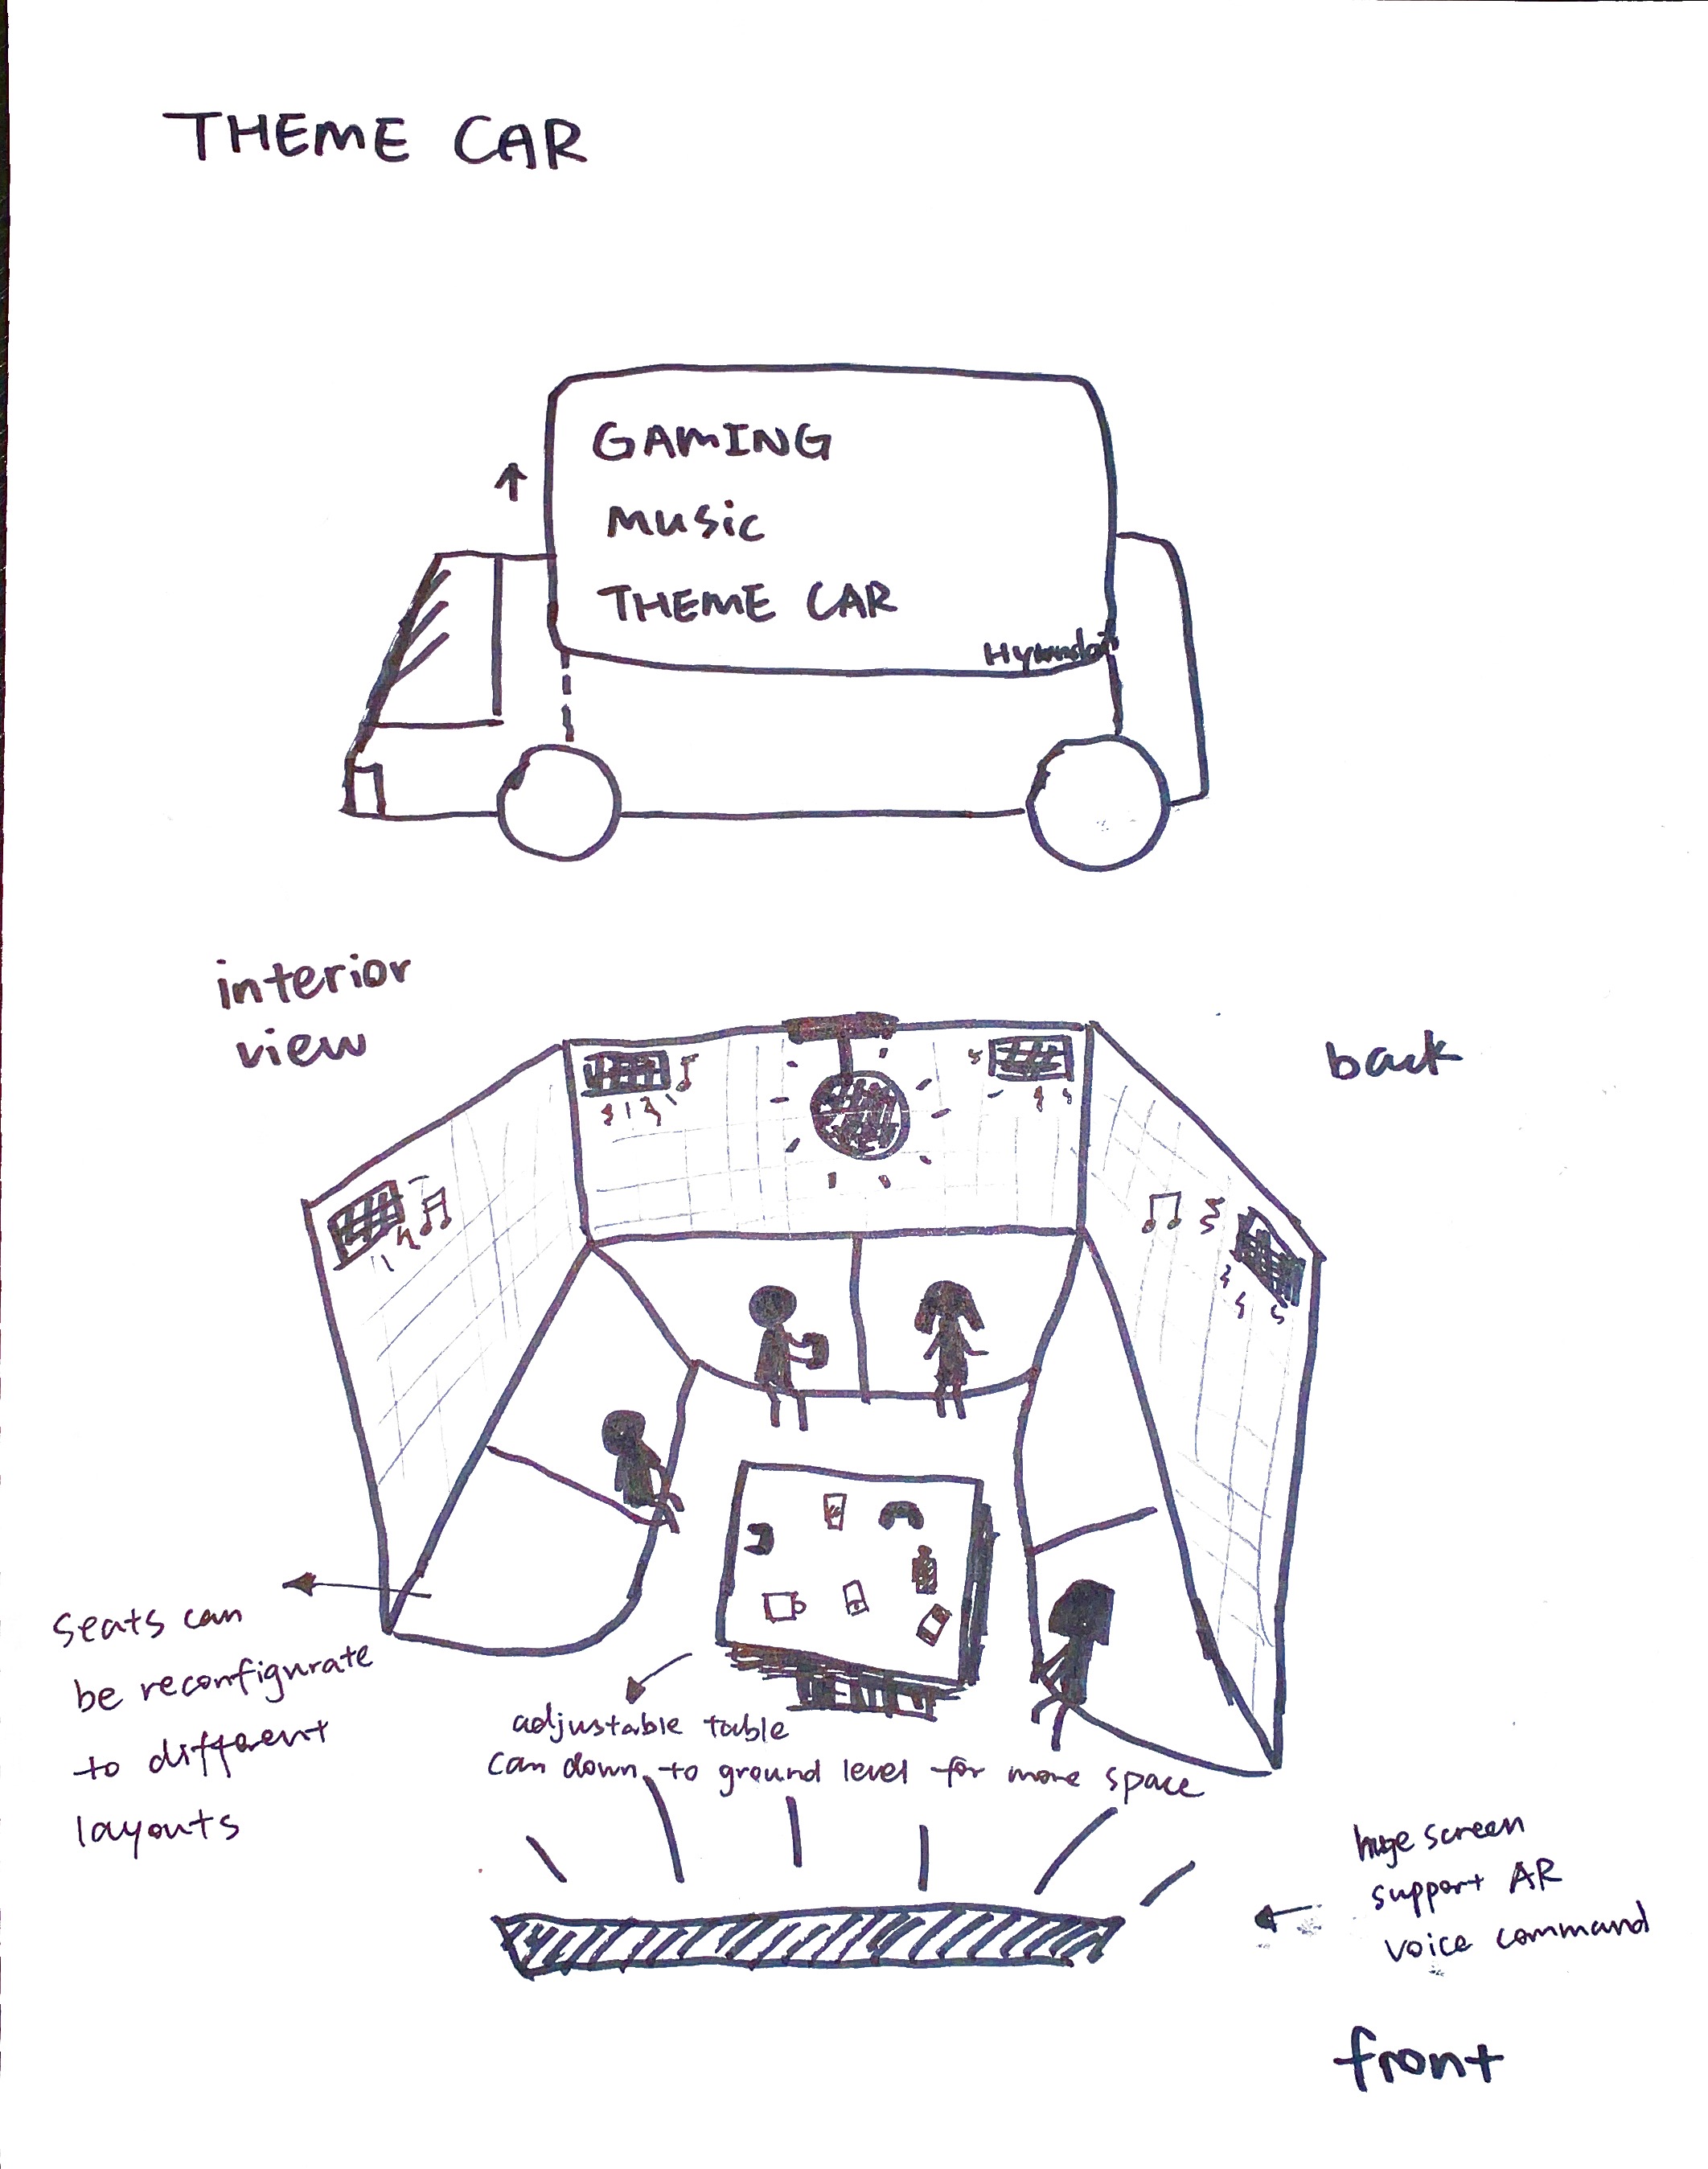 THEME CAR
GAMING
music
THEME CAR
Hyundai
interior
view
back
seats can
be reconfigurate
to different
layouts
adjustable table
can down to ground level for more space
huge screen
support AR
voice command
front